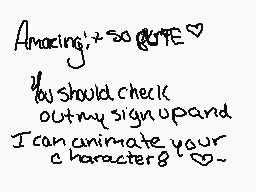 Amazing! + SO CUTE ♡
You should check
out my sign up and
I can animate your
characters ♡~